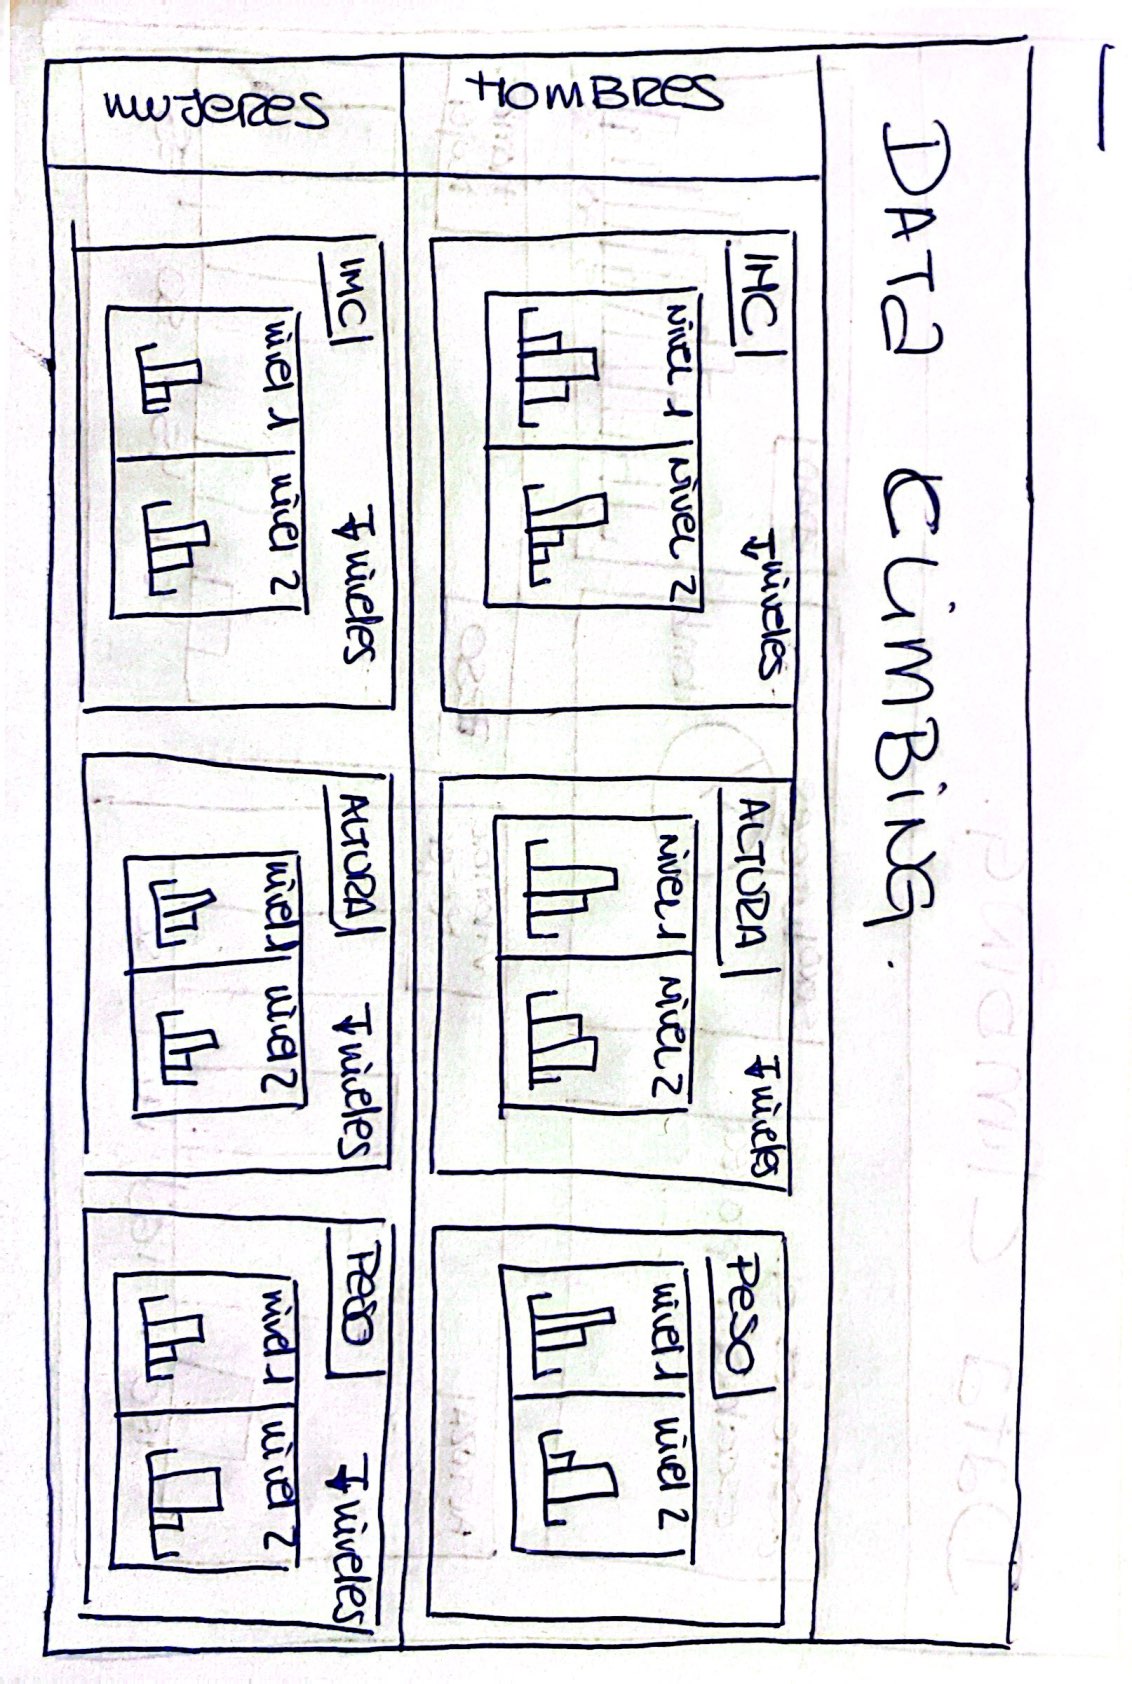 DATA CLIMBING.
HOMBRES
IMC
niveles
Nivel 1
Nivel 2
ALTURA
niveles
Nivel 1
Nivel 2
PESO
nivel 1
nivel 2
mujeres
IMC
niveles
nivel 1
nivel 2
ALTURA
niveles
nivel 1
nivel 2
PESO
niveles
nivel 1
nivel 2